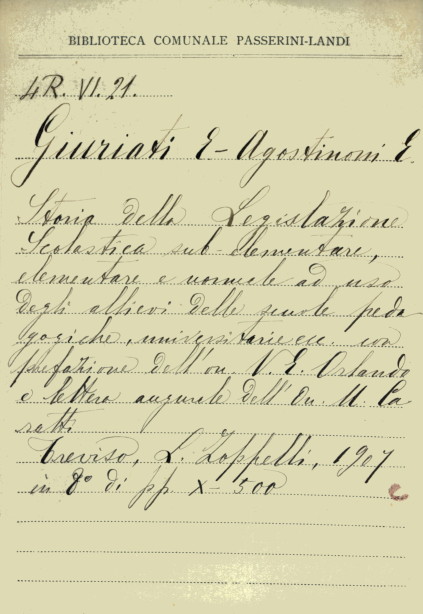 BIBLIOTECA COMUNALE PASSERINI-LANDI
4R. VI. 21.
Giuriati E - Agostinoni E.
Storia della Legislazione
Scolastica sub-elementare,
elementare e normale ad uso
degli allievi delle scuole peda
gogiche, universitarie ecc. con
prefazione dell'on. V. E. Orlando
e lettera augurale dell'On. U. Ca
ratti
Treviso, L. Zoppelli, 1907
in 8° di pp. X-500